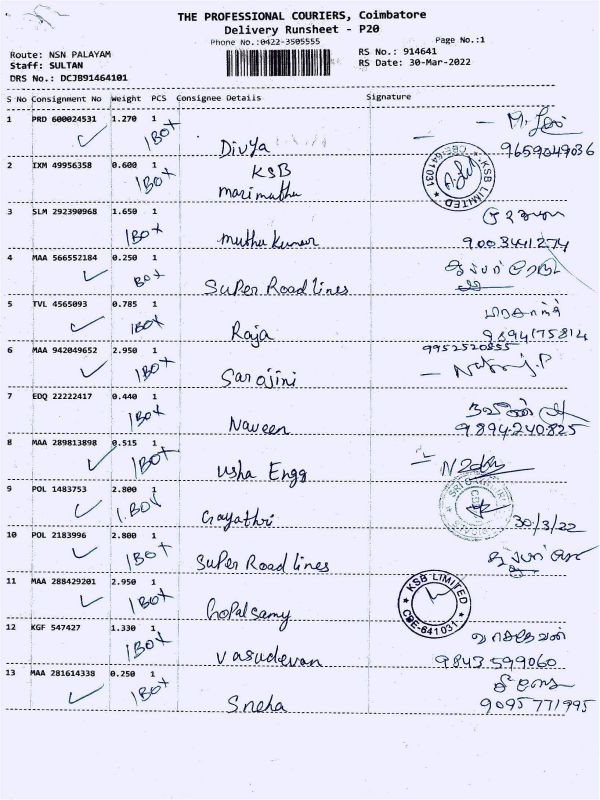 THE PROFESSIONAL COURIERS, Coimbatore
Delivery Runsheet - P20
Phone No.:0422-3505555
Page No.:1
Route: NSN PALAYAM
RS No.: 914641
Staff: SULTAN
RS Date: 30-Mar-2022
DRS No.: DCJB91464101
S No Consignment No Weight PCS Consignee Details Signature
1 PRD 600024531 1.270 1
1 BOX Divya 9659049036
2 IXM 49956358 0.600 1
1 BOX KSB
marimuthu
KSB LIMITED CBE-641031
3 SLM 292390968 1.650 1
1 BOX muthu kumar 9003441274
4 MAA 566552184 0.250 1
BOX Super Road lines
5 TVL 4565093 0.785 1
1 BOX Raja 9894175814
6 MAA 942049652 2.950 1 9952520855
1 BOX Sarojini
7 EDQ 22222417 0.440 1
1 BOX Naveen நவீன்
9894240825
8 MAA 289813898 0.515 1
1 BOX usha Engg
9 POL 1483753 2.800 1
1 BOX Gayathri 30/3/22
10 POL 2183996 2.800 1
1 BOX Super Road lines
11 MAA 288429201 2.950 1
1 BOX Gopalsamy
KSB LIMITED CBE-641031
12 KGF 547427 1.330 1
1 BOX vasudevan வாசுதேவன்
9843599060
13 MAA 281614338 0.250 1
1 BOX Sneha 9095771995